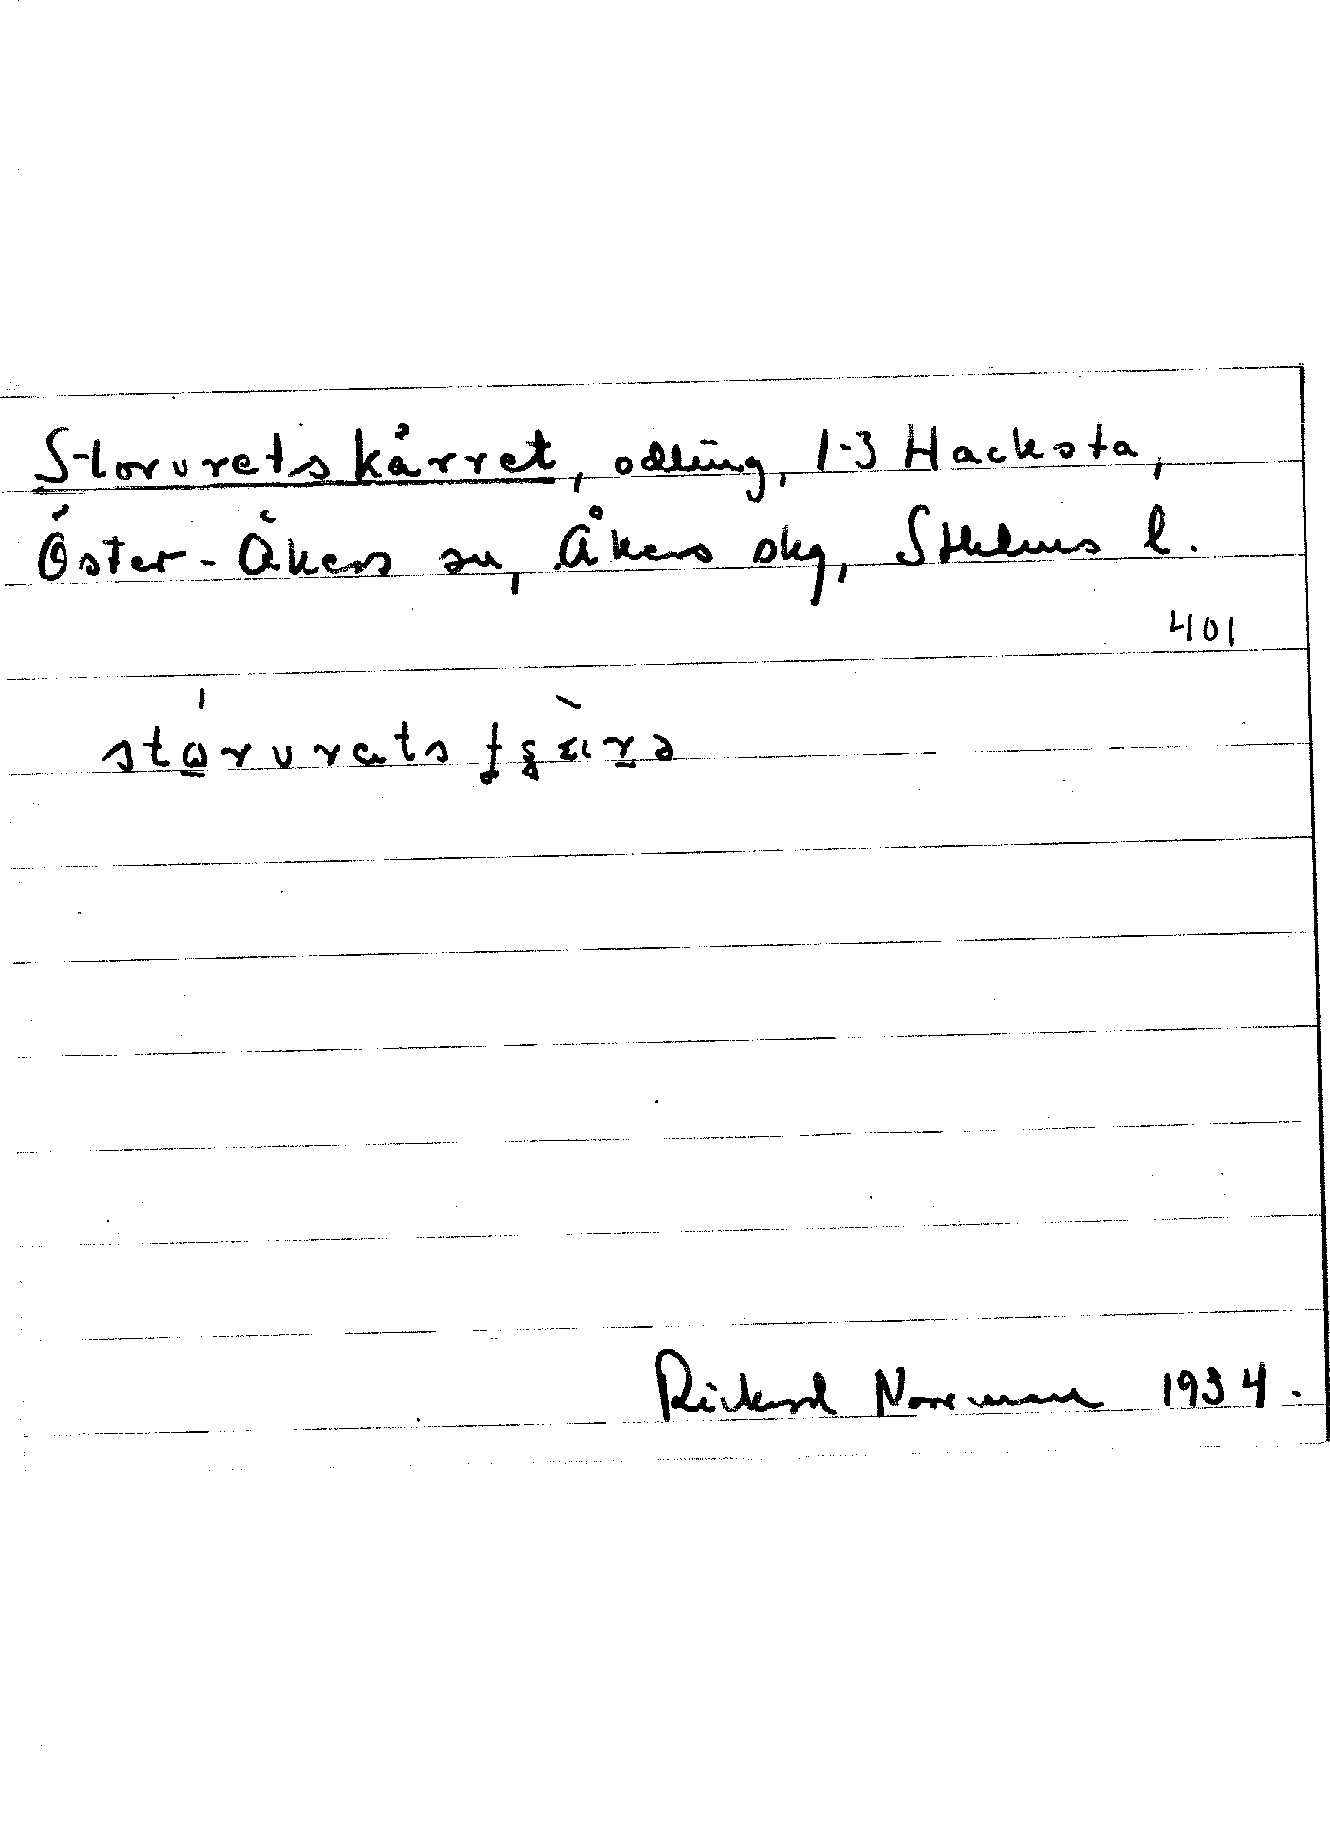 Storvretskärret, odling, 1-3 Hacksta,
Öster-Åkers sn, Åkers skg, Sthlms l.
401
Rickard Noreman 1934.